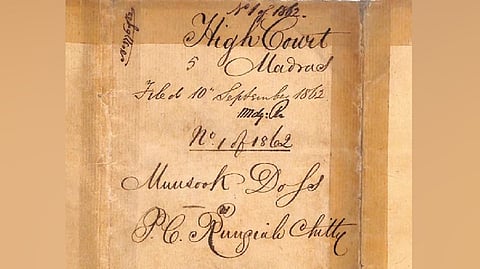 No 1 of 1862.
High Court
5 Madras
Filed 10th September 1862
No. 1 of 1862
Munsook Doss
vs
P. C. Rungiah Chitty